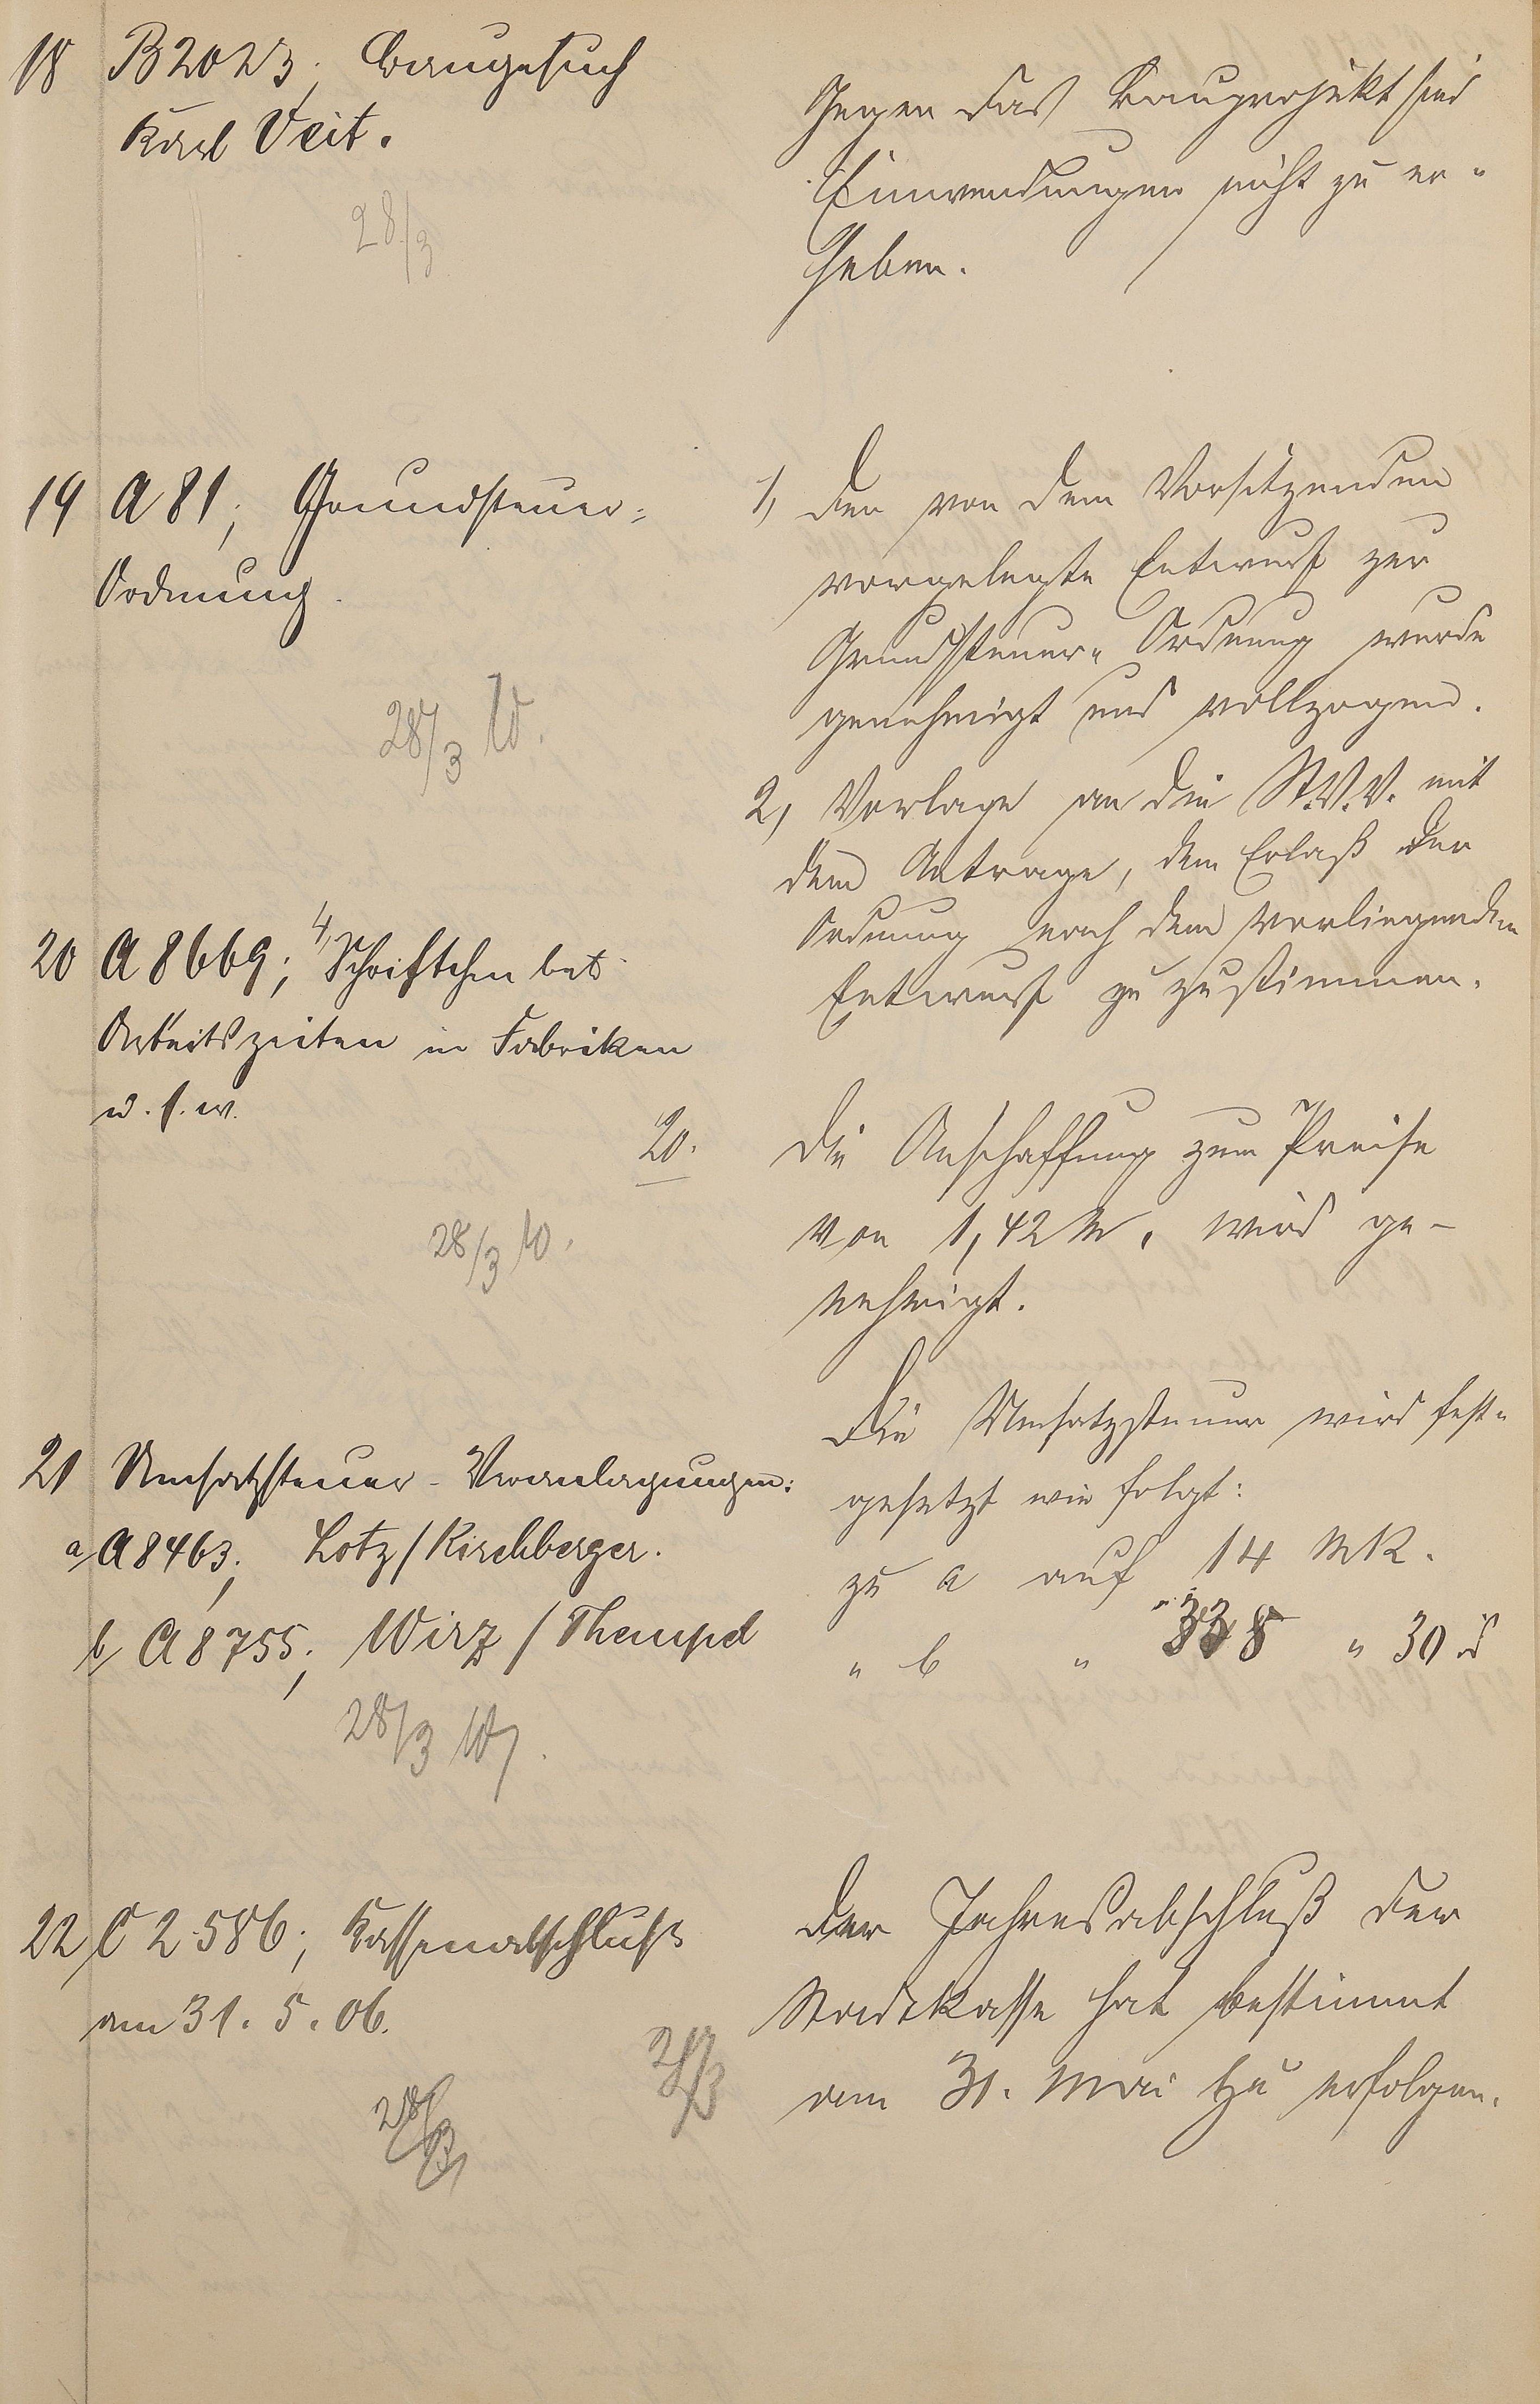 18 B 2023; Baugesuch
Karl Veit.
28/3
Gegen das Bauprojekt sind
Einwendungen nicht zu er-
heben.
19 A 81; Grundsteuer-
Ordnung.
28/3 W.
1, Der von dem Vorsitzenden
vorgelegte Entwurf zur
Grundsteuer-Ordnung wurde
genehmigt und vollzogen.
2, Vorlage an die St.V.V. mit
dem Antrage, dem Erlaß der
Ordnung nach dem vorliegenden
Entwurf zu zustimmen.
20 A 8669; 4, Schriftchen betr.
Arbeitszeiten in Fabriken
u. s. w.
28/3 W.
20. Die Anschaffung zum Preise
von 1,42 M, wird ge-
nehmigt.
21 Umsatzsteuer-Veranlagungen:
a, A 8463; Lotz/Kirchberger.
b, A 8755; Wirz/Thempel
28/3 W.
Die Umsatzsteuer wird fest-
gesetzt wie folgt:
zu a auf 14 MK.
" b " 338 " 30 d
22 C 2586; Kassenabschluss
am 31. 5. 06.
28/3
28/3
Der Jahresabschluß der
Stadtkasse hat bestimmt
am 31. Mai zu erfolgen.